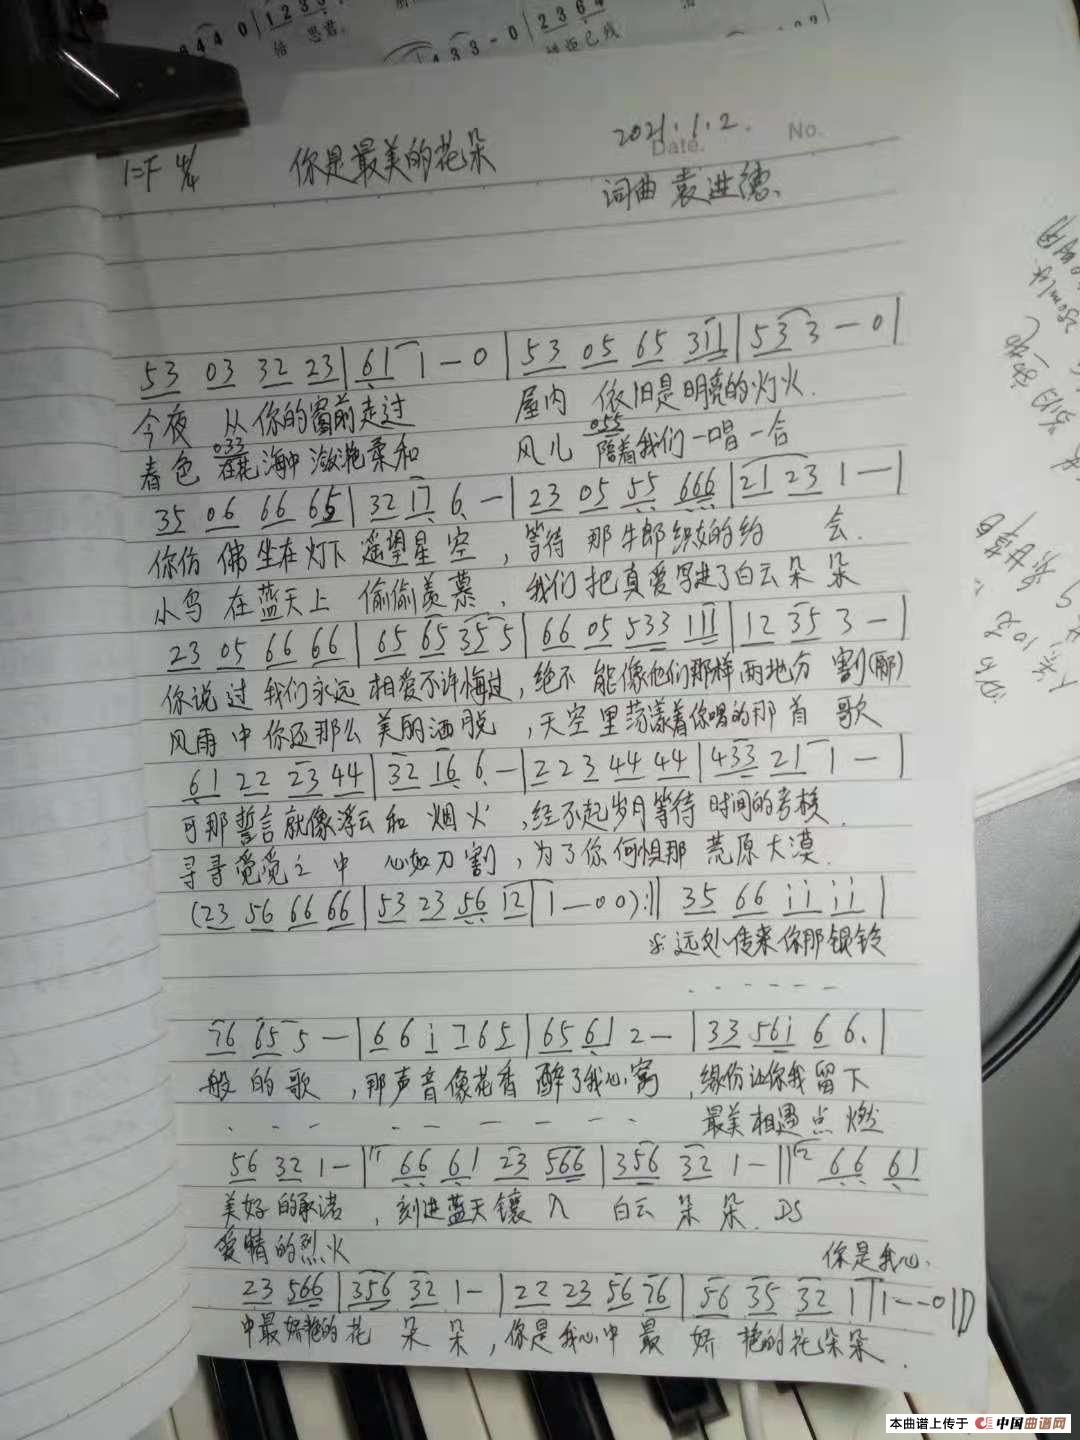 1=F 4/4 你是最美的花朵 2021.1.2.
Date. No.
词曲 袁进德
53 03 32 23 | 61 1 - 0 | 53 05 65 311 | 53 3 - 0 |
今夜 从你的窗前走过 屋内 依旧是明亮的灯火.
033 055
春色 在花海中潋滟柔和 风儿 陪着我们一唱一合
35 06 66 65 | 32 17 6. - | 23 05 55 666 | 21 23 1 - |
你仿佛坐在灯下遥望星空,等待那牛郎织女的约会.
小鸟在蓝天上偷偷羡慕,我们把真爱写进了白云朵朵
23 05 66 66 | 65 65 35 5 | 66 05 533 111 | 12 35 3 - |
你说过我们永远相爱不许悔过,绝不能像他们那样两地分割(隔)
风雨中你还那么美的洒脱,天空里荡漾着你唱的那首歌
61 22 23 44 | 32 16 6. - | 2 2 3 44 44 | 433 21 1 - |
可那誓言就像浮云和烟火,经不起岁月等待时间的考核.
寻寻觅觅之中心如刀割,为了你何惧那荒原大漠.
(23 56 66 66 | 53 23 56 12 | 1 - 0 0) :|| 35 66 ii ii |
远处传来你那银铃
76 65 5 - | 6 6 i 7 6 5 | 65 61 2 - | 33 56i 6 6. |
般的歌,那声音像花香醉了我心窝,缘份让你我留下
最美相遇点燃
56 32 1 - | 66 61 23 566 | 356 32 1 - || 2 66 61
美好的承诺,刻进蓝天镶入白云朵朵. DS
爱情的烈火 你是我心.
23 566 | 356 32 1 - | 22 23 56 76 | 56 35 32 1 | 1 - - 0 ||
中最娇艳的花朵朵,你是我心中最娇艳的花朵朵.
本曲谱上传于 中国曲谱网